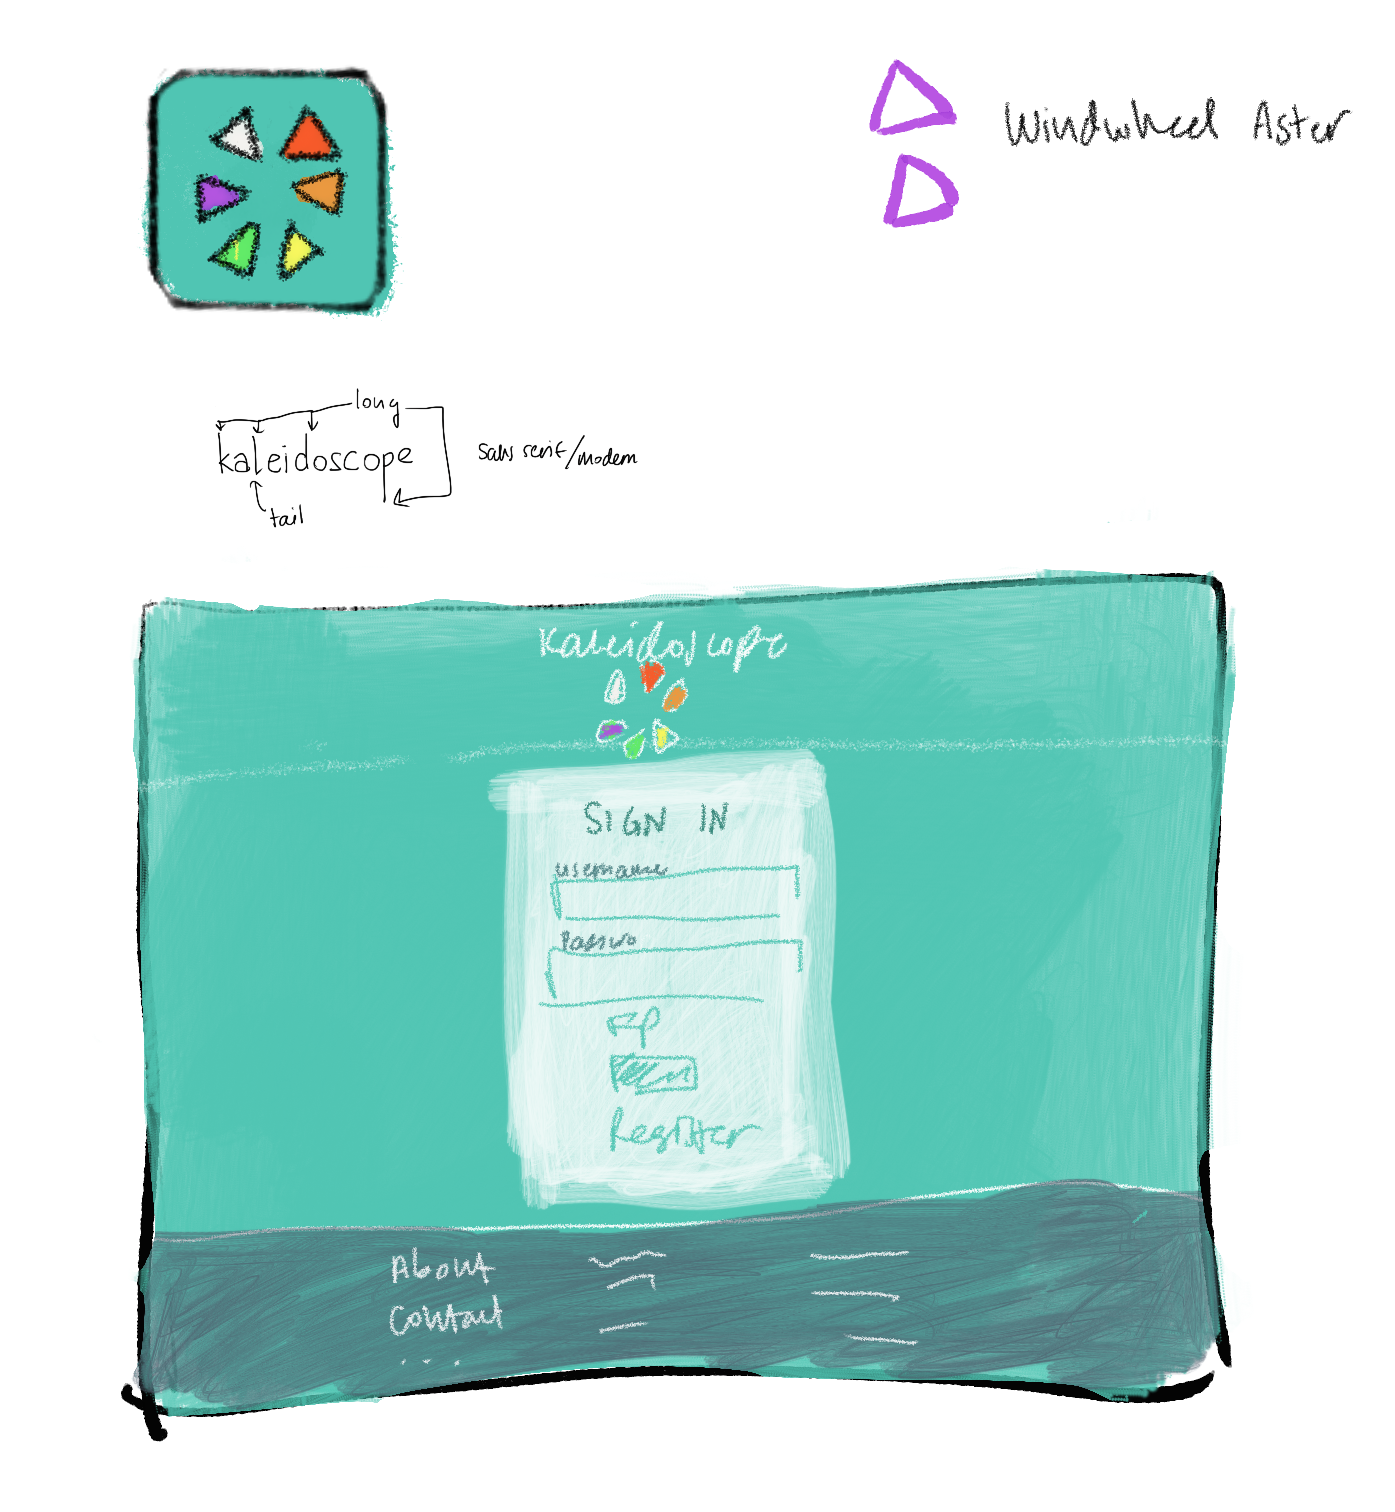 Windwheel Aster
long
kaleidoscope
sans serif/modern
tail
Kaleidoscope
SIGN IN
username
Passwo
FP
Register
About
Contact
...